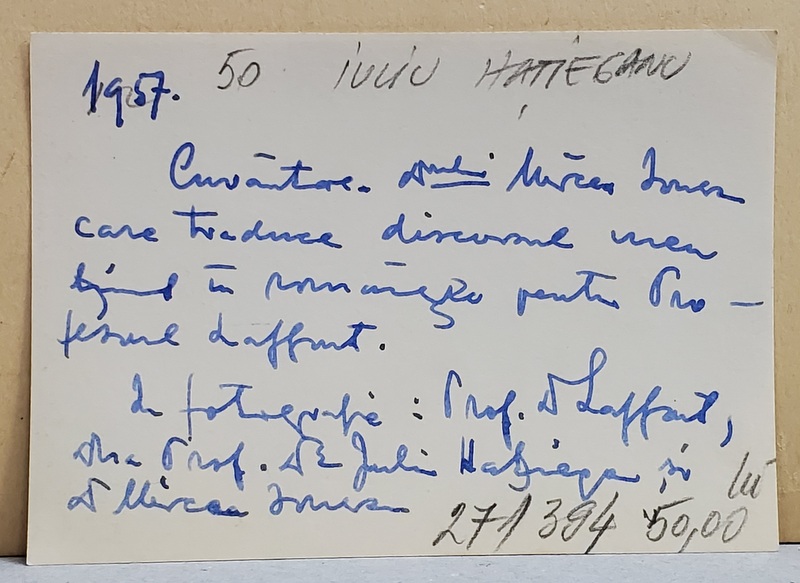 1957. 50 IULIU HAȚIEGANU
Cuvântare. Dnului Mircea Ionescu
care traduce discursul meu
ținut în românește pentru Pro-
fesorul Laffont.
In fotografie: Prof. Dr Laffont,
Dna Prof. Dr Juliu Hațieganu și
Dr Mircea Ionescu
271394 50,00 lei